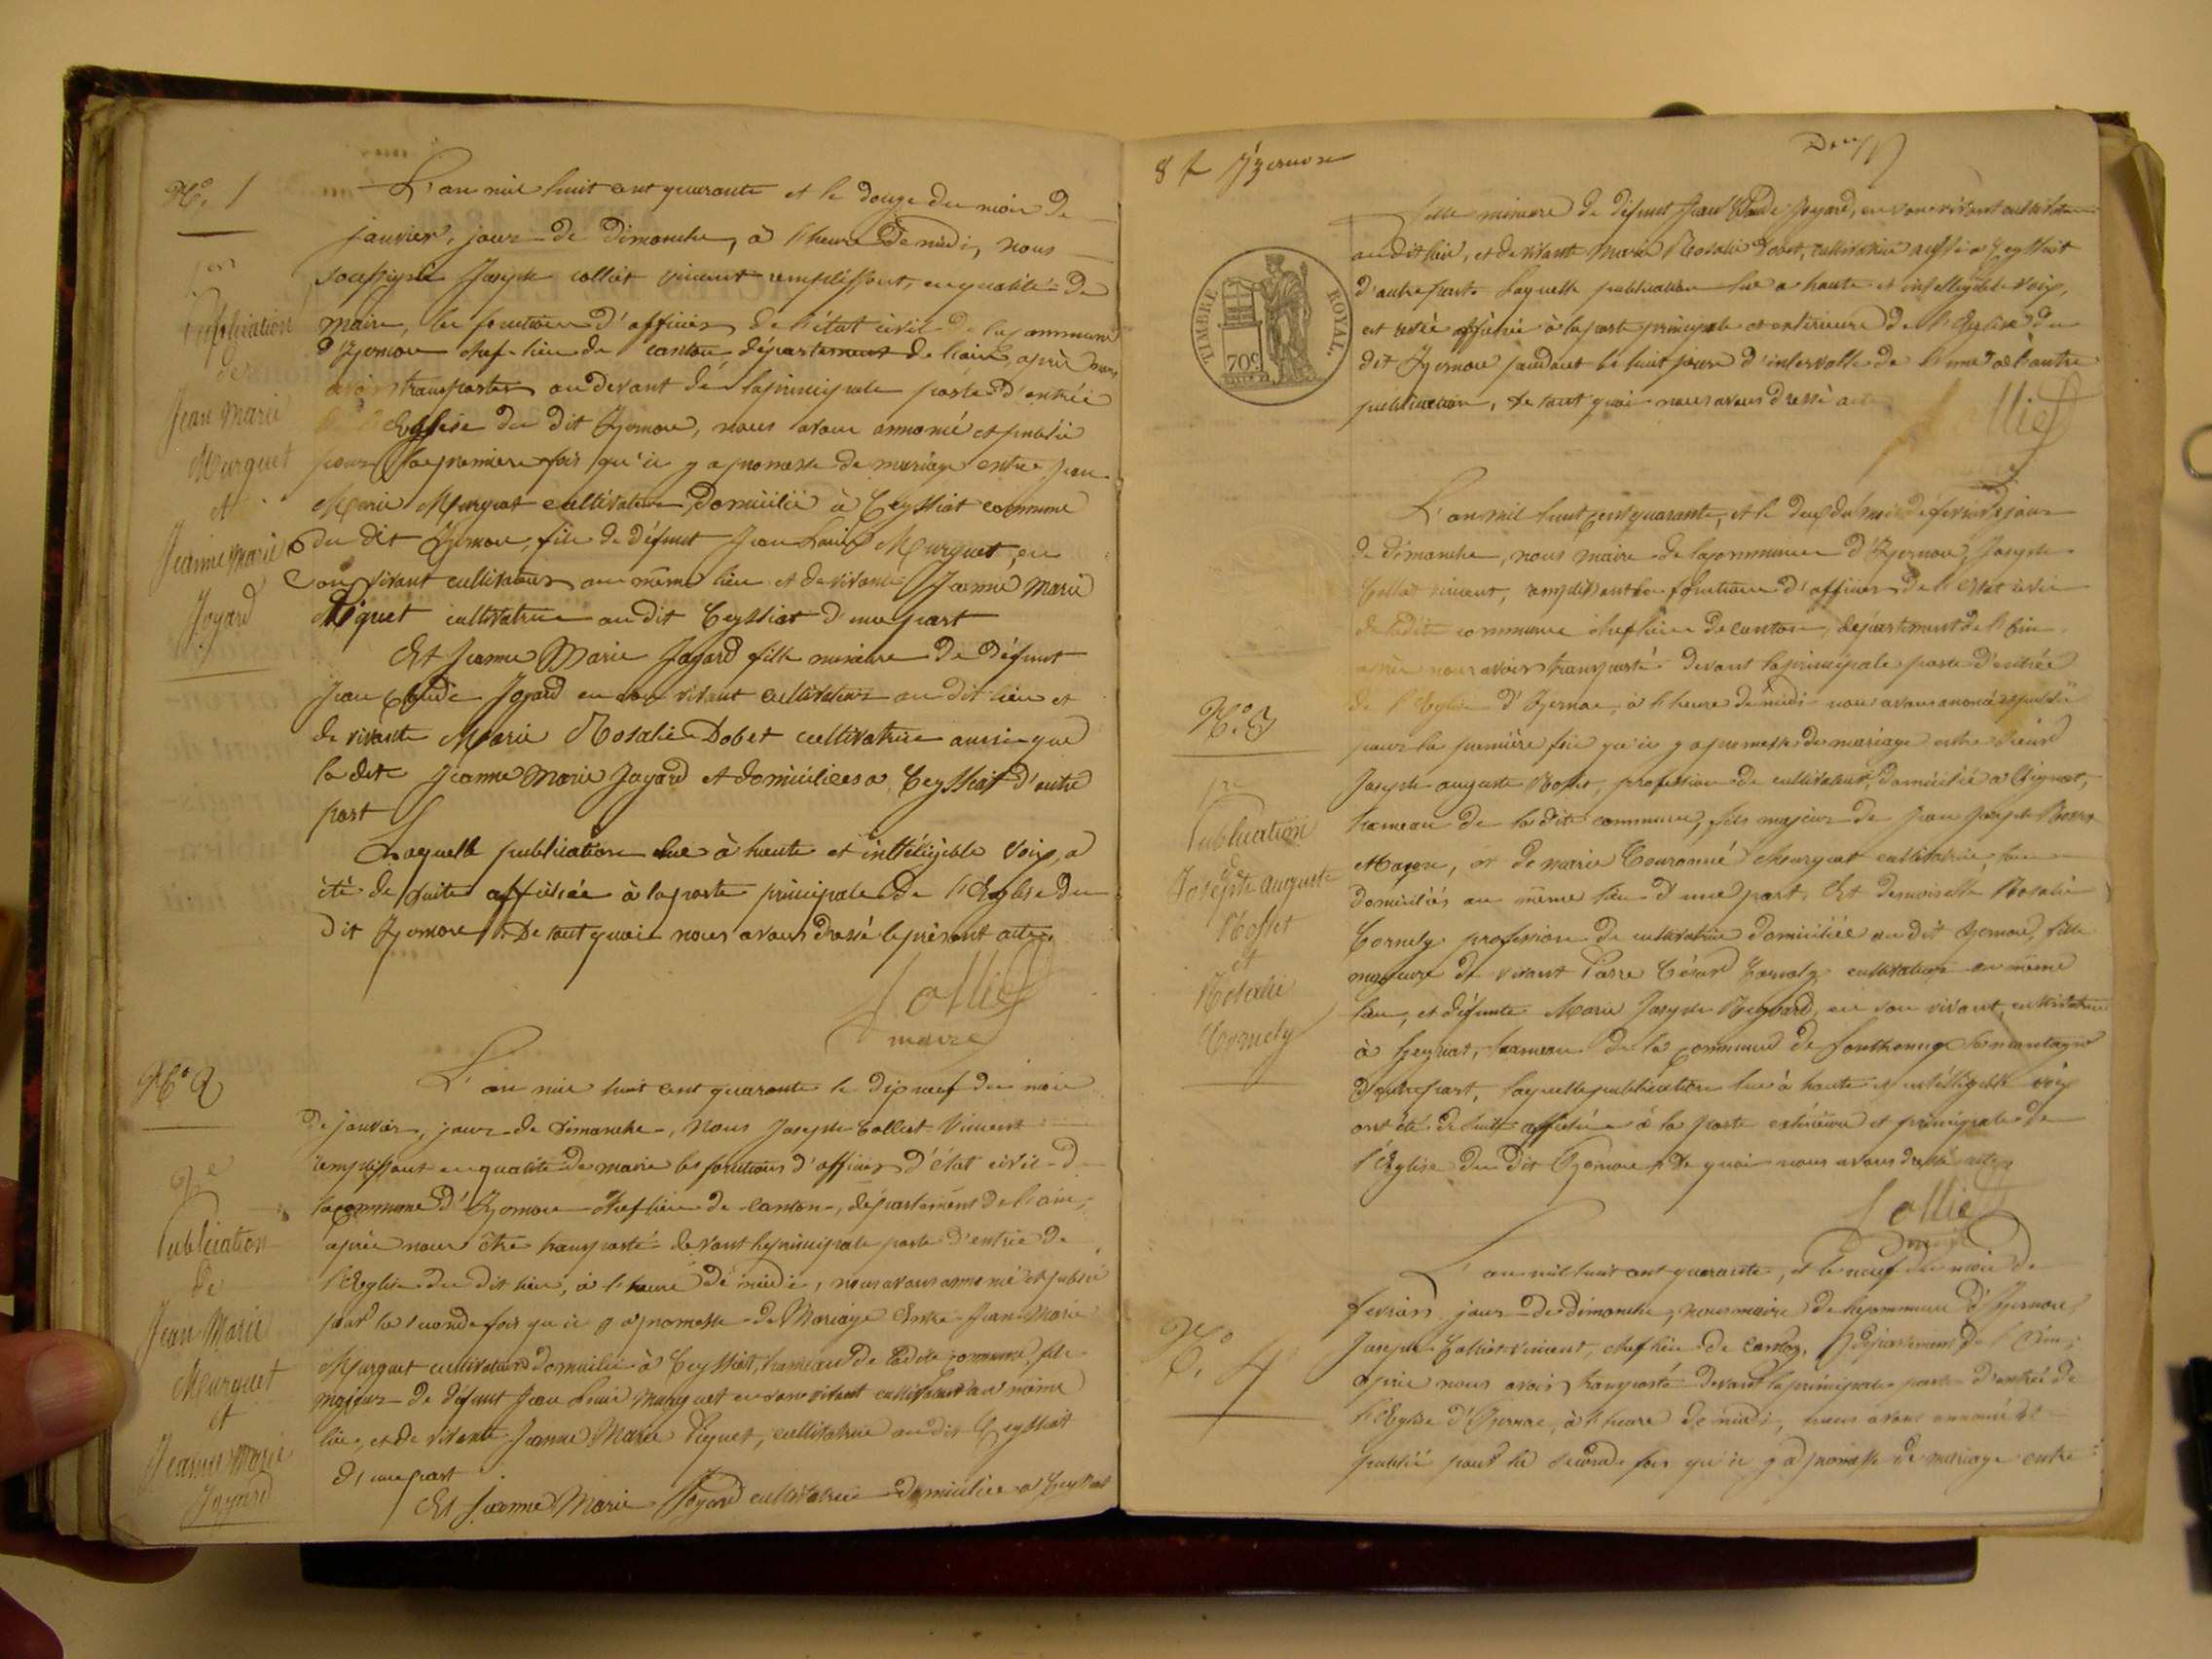 N.o 1
1ère
Publication
de
Jean Marie
Murguet
et
Jeanne Marie
Joyard
L'an mil huit cent quarante et le douze du mois de
janvier, jour de dimanche, à l'heure de midi, nous
soussigné Joseph Colliet Vincent remplissant, en qualité de
maire, les fonctions d'officier de l'état civil de la commune
d'Izernore chef-lieu de canton, département de l'ain, après nous
avoir transporter au devant de la principale porte d'entrée
de l'Eglise du dit Izernore, nous avons annoncé et publié
pour la première fois qu'il y a promesse de mariage entre Jean
Marie Murguet cultivateur domicilié à Ceyssiat commune
du dit Izernore, fils de défunt Jean Louis Murguet, en
son vivant cultivateur au même lieu et de vivante Jeanne Marie
Piquet cultivatrice au dit Ceyssiat d'une part
Et Jeanne Marie Joyard fille mineure de défunt
Jean Claude Joyard en son vivant cultivateur au dit lieu et
de vivante Marie Rosalie Dobet cultivatrice aussi que
la dite Jeanne Marie Joyard et domiciliées à Ceyssiat d'autre
part
Laquelle publication lue à haute et inttéligible voix, a
été de suite affichée à la porte principale de l'Eglise du
dit Izernore. De tout quoi nous avons dressé le présent acte.
Colliet
maire
N.o 2
2e
Publication
de
Jean Marie
Murguet
et
Jeanne Marie
Joyard
L'an mil huit cent quarante le dix neuf du mois
de janvier, jour de dimanche, Nous Joseph Colliet Vincent
remplissant en qualité de maire les fonctions d'officier d'état civil d
la commune d'Izernore chef lieu de canton, département de l'ain,
après nous être transporté devant la principale porte d'entrée de
l'Eglise du dit lieu, à l'heure de midi, nous avons annoncé et publié
pour la seconde fois qu'il y a promesse de Mariage Entre Jean Marie
Murguet cultivateur domicilié à Ceyssiat, hameau de ladite commune, fils
majeur de défunt Jean Louis Murguet en son vivant cultivateur au même
lieu, et de vivante Jeanne Marie Piquet, cultivatrice au dit Ceyssiat
d'une part
Et Jeanne Marie Joyard cultivatrice domiciliée à Ceyssiat
8 f Izernore
Deux
TIMBRE ROYAL.
70c
fille mineure de défunt Jean Claude Joyard, en son vivant cultivateur
au dit lieu, et de vivante Marie Rosalie Dobet, cultivatrice aussi à Ceyssiat
d'autre part. Laquelle publication lue à haute et intelligible voix,
est restée affichée à la porte principale et extérieure de l'Eglise du
dit Izernore pendant les huit jours d'intervalle de l'une à l'autre
publication, de tout quoi nous avons dressé acte
Colliet
N.o 3
1re
Publication
Joseph auguste
Rosset
et
Rosalie
Cornely
L'an mil huit cent quarante, et le deux du mois de février jour
de dimanche, nous maire de la commune d'Izernore, Joseph
Colliet vincent, remplissant les fonctions d'officier de l'Etat civil
de ladite commune chef lieu de canton, département de l'Ain
après nous avoir transporté devant la principale porte d'entrée
de l'Eglise d'Izernore, à l'heure de midi nous avons anoncé et publié
pour la première fois qu'il y a promesse de mariage entre Sieurs
Joseph auguste Rosset, profession de cultivateur, domicilié à
hameau de la dite commune, fils majeur de Jean Joseph Rosset
Maçon, et de marie Couronné Murguet cultivatrice, tous
domiciliés au même lieu d'une part. Et demoiselle Rosalie
Cornely profession de cultivatrice domiciliée au dit Izernore, fille
majeure de vivant Pierre César Cornely cultivateur au même
lieu, et défunte Marie Joseph Reybard, en son vivant, cultivatrice
à Heyriat, hameau de la commune de Sonthonnax la montagne
d'autre part, laquelle publication lue à haute et intelligible voix
ont été de suite affichée à la porte extérieure et principale de
l'Eglise du dit Izernore. De quoi nous avons dressé acte
Colliet
N.o 4
L'an mil huit cent quarante, et le neuf du mois de
fevrier jour de dimanche, nous maire de la commune d'Izernore
Joseph Colliet-vincent, chef lieu de canton, département de l'Ain,
après nous avoir transporté devant la principale porte d'entrée de
l'Eglise d'Izernore, à l'heure de midi, nous avons annoncé et
publié pour la seconde fois qu'il y a promesse de mariage entre